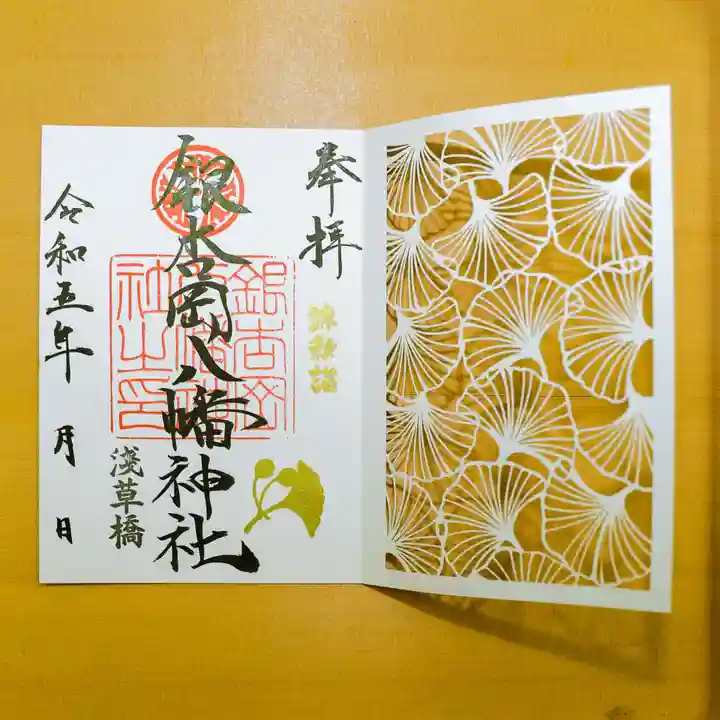 奉拝
錦秋詣
銀杏岡八幡神社
銀杏岡
八幡神
社之印
淺草橋
令和五年 月 日